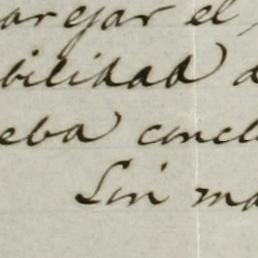 argar el
bilidad d
eba concl
Sin ma